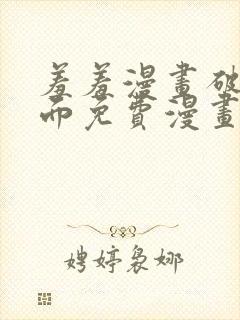 羞羞漫畫破
而免費漫畫
娉婷裊娜